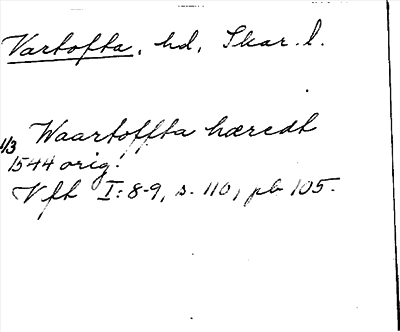 Vartofta, hd, Skar. l.
Waartoffta hæredt
1/3 1544 orig!
Vft I: 8-9, s. 110, pl 105.